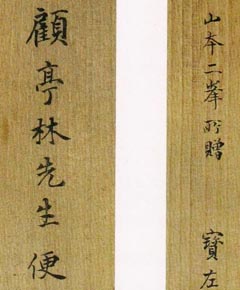 山本二峯所贈 寶左
顧亭林先生便